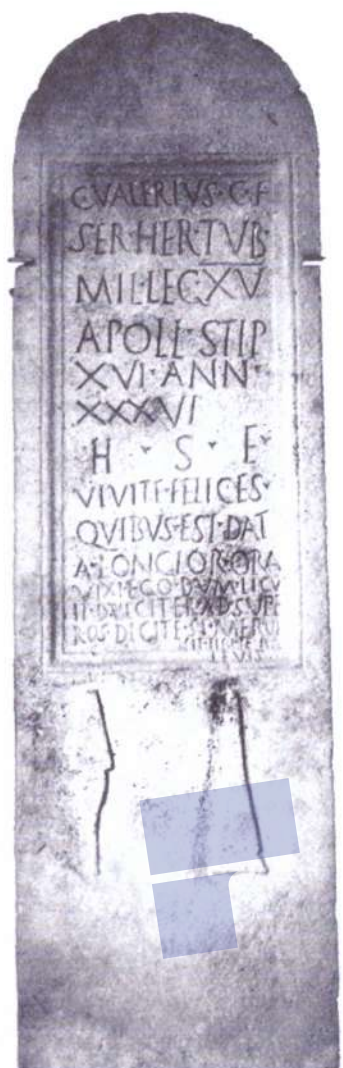 C·VALERIVS·C·F
SER·HER·TVB·
MIL·LEG·XV
APOLL·STIP
XVI·ANN·
XXXVI
H · S · E ·
VIVITE·FELICES·
QVIBVS·EST·DAT
A·LONGIOR·ORA
VIXI·EGO·DVM·LICV
IT·DVLCITER·AD·SVPE
ROS·DICITE·SI·MERVI